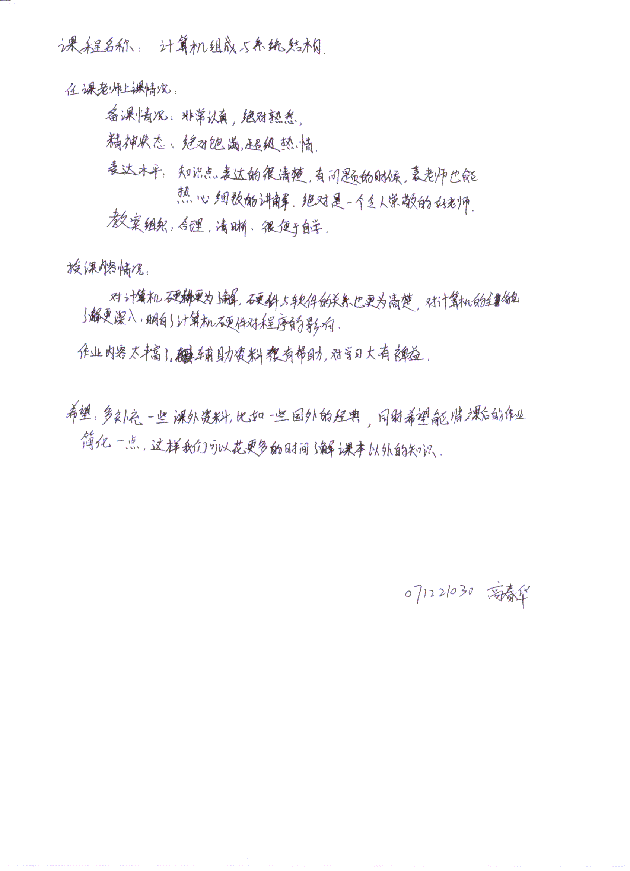 课程名称: 计算机组成与系统结构.
任课老师上课情况:
备课情况: 非常认真, 绝对熟悉.
精神状态: 绝对饱满, 超级热情.
表达水平: 知识点表达的很清楚, 有问题的时候, 袁老师也能
热心细致的讲解. 绝对是一个令人崇敬的好老师.
教案组织: 合理. 清晰. 很便于自学.
授课内容情况:
对计算机硬件更为了解, 硬件与软件的关系也更为清楚, 对计算机的
了解更深入. 明白了计算机硬件对程序的影响.
作业内容太丰富了, 辅助资料很有帮助, 对学习大有裨益.
希望: 多补充一些课外资料, 比如一些国外的经典, 同时希望能将课后的作业
简化一点. 这样我们可以花更多的时间了解课本以外的知识.
071221030 高春华